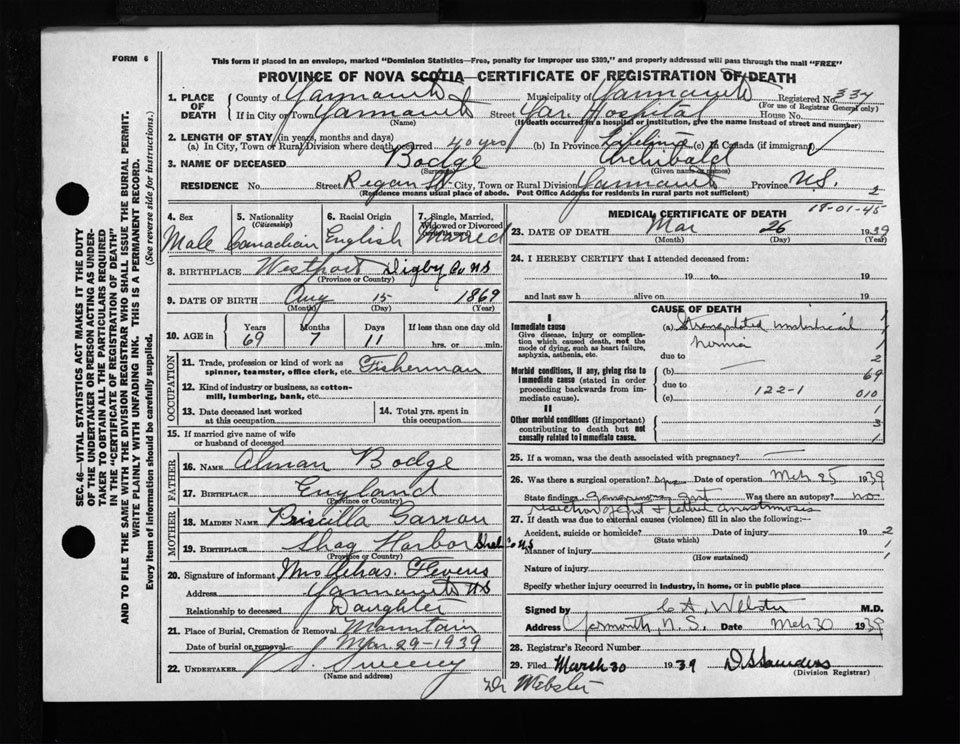 FORM 6
This form if placed in an envelope, marked "Dominion Statistics—Free, penalty for improper use $300", and properly addressed will pass through the mail "FREE"
PROVINCE OF NOVA SCOTIA—CERTIFICATE OF REGISTRATION OF DEATH
1. PLACE OF DEATH County of Yarmouth Municipality of Yarmouth Registered No. 334
(For use of Registrar General only)
If in City or Town Yarmouth Street Yar. Hospital House No.
(Name) (If death occurred in a hospital or institution, give the name instead of street and number)
2. LENGTH OF STAY (in years, months and days)
(a) In City, Town or Rural Division where death occurred 40 yrs (b) In Province Lifetime (c) In Canada (if immigrant)
3. NAME OF DECEASED Bodge Archibald
(Surname) (Given name or names)
RESIDENCE No. Street Regan St. City, Town or Rural Division Yarmouth Province N.S. 2
(Residence means usual place of abode. Post Office Address for residents in rural parts not sufficient)
SEC. 46—VITAL STATISTICS ACT MAKES IT THE DUTY
OF THE UNDERTAKER OR PERSON ACTING AS UNDER-
TAKER TO OBTAIN ALL THE PARTICULARS REQUIRED
IN THE "CERTIFICATE OF REGISTRATION OF DEATH"
AND TO FILE THE SAME WITH THE DIVISION REGISTRAR WHO SHALL ISSUE THE BURIAL PERMIT.
WRITE PLAINLY WITH UNFADING INK. THIS IS A PERMANENT RECORD.
Every item of information should be carefully supplied. (See reverse side for instructions.)
4. Sex 5. Nationality (Citizenship) 6. Racial Origin 7. Single, Married, Widowed or Divorced
Male Canadian English Married
8. BIRTHPLACE Westport Digby Co NS
(Province or Country)
9. DATE OF BIRTH Aug 15 1869
(Month) (Day) (Year)
10. AGE in Years Months Days If less than one day old
69 7 11 hrs. or min.
OCCUPATION
11. Trade, profession or kind of work as spinner, teamster, office clerk, etc. Fisherman
12. Kind of industry or business, as cotton-mill, lumbering, bank, etc.
13. Date deceased last worked at this occupation
14. Total yrs. spent in this occupation
15. If married give name of wife or husband of deceased
FATHER
16. NAME Alman Bodge
17. BIRTHPLACE England
(Province or Country)
MOTHER
18. MAIDEN NAME Priscilla Garron
19. BIRTHPLACE Shag Harbor Shel Co NS
(Province or Country)
20. Signature of informant Mrs Chas. Stevens
Address Yarmouth NS
Relationship to deceased Daughter
21. Place of Burial, Cremation or Removal Mountain
Date of burial or removal Mar. 29-1939
22. UNDERTAKER V S. Sweeny
(Name and address)
MEDICAL CERTIFICATE OF DEATH 19-01-45
23. DATE OF DEATH Mar 26 1939
(Month) (Day) (Year)
24. I HEREBY CERTIFY that I attended deceased from:
19 to 19
and last saw h alive on 19
CAUSE OF DEATH
I
Immediate cause (a) Strangulated umbilical 1
Give disease, injury or complication which caused death, not the mode of dying, such as heart failure, asphyxia, asthenia, etc.
hernia 1
due to 2
Morbid conditions, if any, giving rise to immediate cause (stated in order proceeding backwards from immediate cause).
(b) 69
due to 122-1
(c) 010
II 1
Other morbid conditions (if important) contributing to death but not causally related to immediate cause.
3
1
25. If a woman, was the death associated with pregnancy?
26. Was there a surgical operation? Yes Date of operation Mch 25 1939
State findings Gangrenous gut Was there an autopsy? no
resection of gut & lateral anastimosis
27. If death was due to external causes (violence) fill in also the following:—
Accident, suicide or homicide? Date of injury 19 2
(State which)
Manner of injury 1
(How sustained)
Nature of injury 1
Specify whether injury occurred in industry, in home, or in public place
Signed by C A Webster M.D.
Address Yarmouth, N.S. Date Mch 30 1939
28. Registrar's Record Number
29. Filed March 30 1939 D S Saunders
(Division Registrar)
Dr Webster